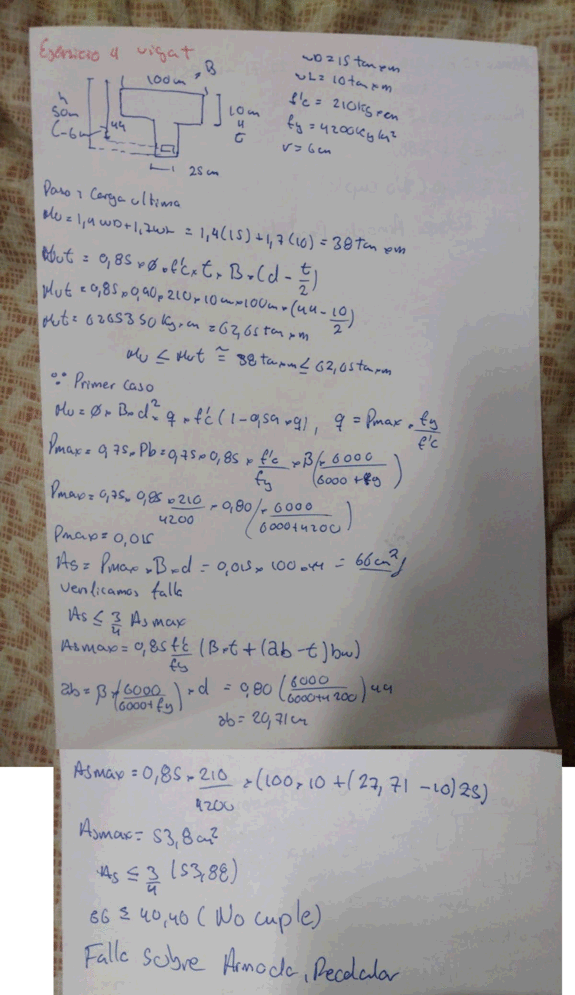 Ejercicio 4 vigat
100cm → B
h
50cm
44
C=6cm
10cm
"
t
25cm
wD = 15 tan×m
wL = 10 tan×m
f'c = 210kg×cm
fy = 4200Kg/cm²
r = 6cm
Paso 1 Carga ultima
Mu = 1,4wD + 1,7wL = 1,4(15) + 1,7(10) = 38 tan×m
Mut = 0,85 × Ø × f'c × t × B × (d - t/2)
Mut = 0,85 × 0,90 × 210 × 10cm × 100cm × (44 - 10/2)
Mut = 6265350 Kg×cm = 62,65 tan×m
Mu ≤ Mut ≅ 38 tan×m ≤ 62,65 tan×m
∵ Primer Caso
Mu = Ø × B × d² × q × f'c (1 - 0,59 × q), q = Pmax × fy/f'c
Pmax = 0,75 × Pb = 0,75 × 0,85 × f'c/fy × B (6000/(6000 + fy))
Pmax = 0,75 × 0,85 × 210/4200 × 0,80 (6000/(6000+4200))
Pmax = 0,015
As = Pmax × B × d = 0,015 × 100 × 44 = 66cm²
Verificamos falla
As ≤ 3/4 Asmax
Asmax = 0,85 f'c/fy (B×t + (ab - t)bw)
ab = β × (6000/(6000+fy)) × d = 0,80 (6000/(6000+4200)) 44
ab = 20,71cm
Asmax = 0,85 × 210/4200 × (100×10 + (27,71 - 10)25)
Asmax = 53,8cm²
As ≤ 3/4 (53,88)
66 ≤ 40,40 (No cuple)
Falla Sobre Armada, Recalcular